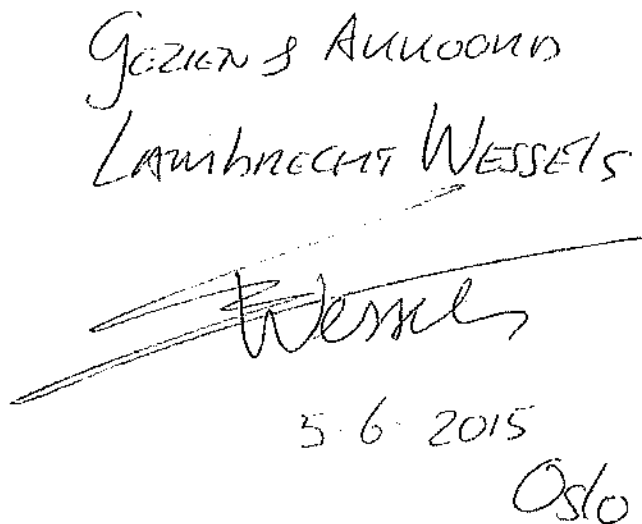 GEZIEN & AKKOORD
LAMBRECHT WESSELS
Wessels
5.6.2015
Oslo